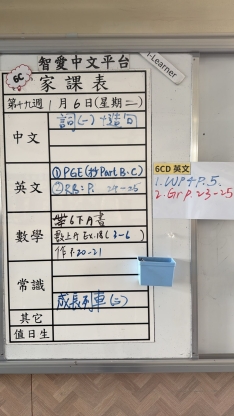 智愛中文平台
i-Learner
6C
家課表
第十九週 1月6日(星期二)
中文
詞(一)+造句
英文
①PGE(抄Part B.C)
②RB: P. 24-25
6CD 英文
1. WP4 P.5.
2. Gr P. 23-25
數學
帶6下A書
數上A Ex.18(3-6)
作 P.20-21
常識
成長列車(三)
其它
值日生